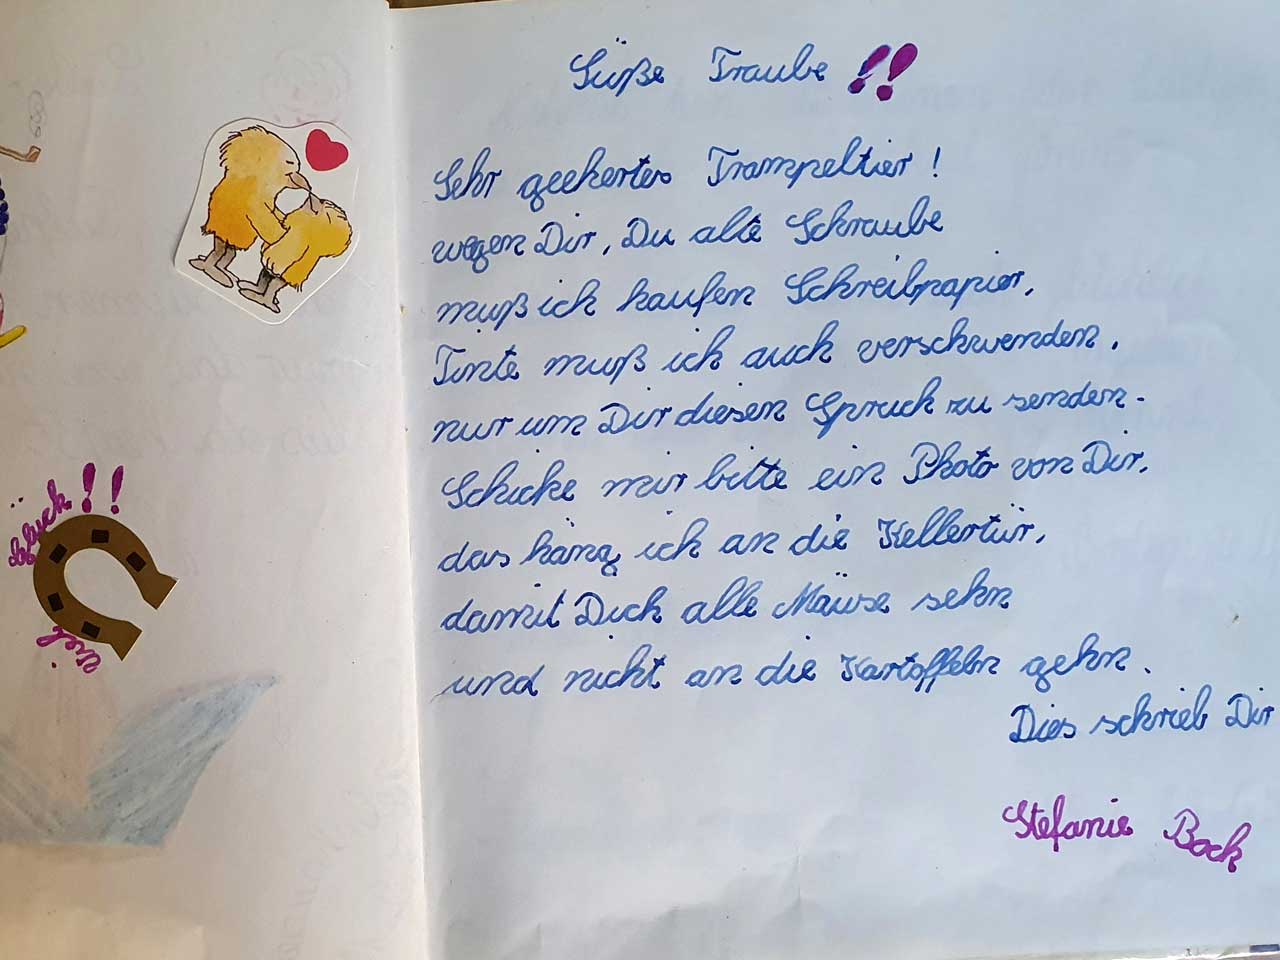 Glück!!
viel
Süße Traube!!
Sehr geehertes Trampeltier!
wegen Dir, Du alte Schraube
muß ich kaufen Schreibpapier,
Tinte muß ich auch verschwenden,
nur um Dir diesen Spruch zu senden.
Schicke mir bitte ein Photo von Dir,
das häng ich an die Kellertür,
damit Dich alle Mäuse sehn
und nicht an die Kartoffeln gehn.
Dies schrieb Dir
Stefanie Bock